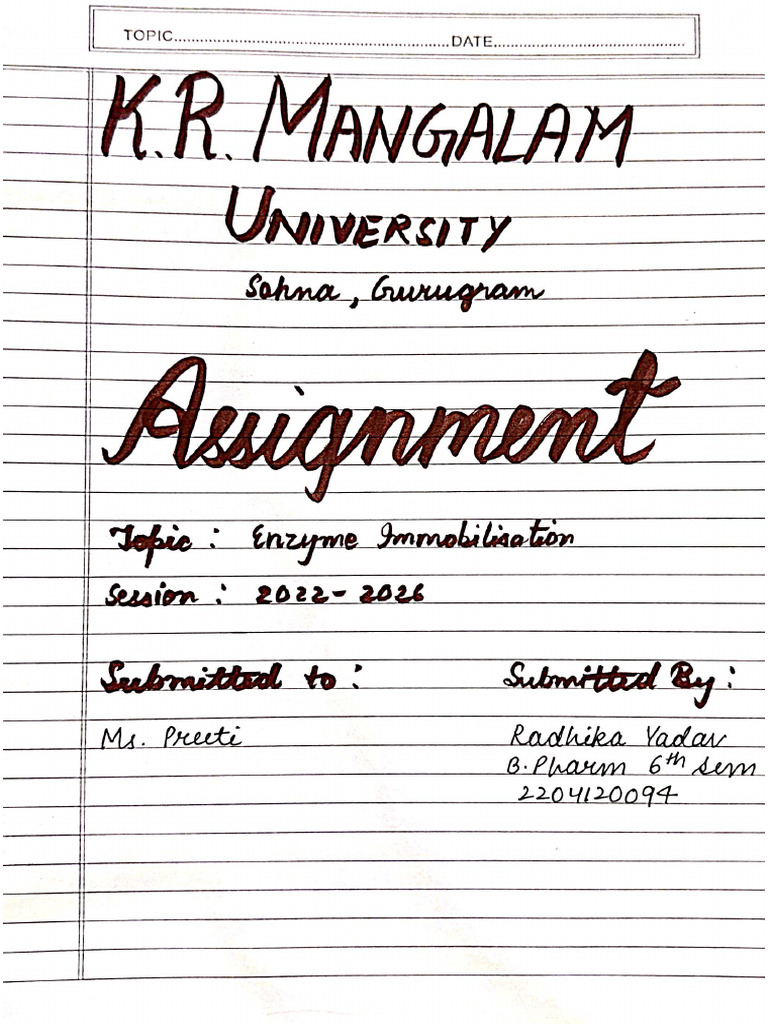 TOPIC........................................................DATE.......................................
K.R. MANGALAM
UNIVERSITY
Sohna, Gurugram
Assignment
Topic : Enzyme Immobilisation
Session : 2022-2026
Submitted to : Submitted By :
Ms. Preeti Radhika Yadav
B.Pharm 6th sem
2204120094